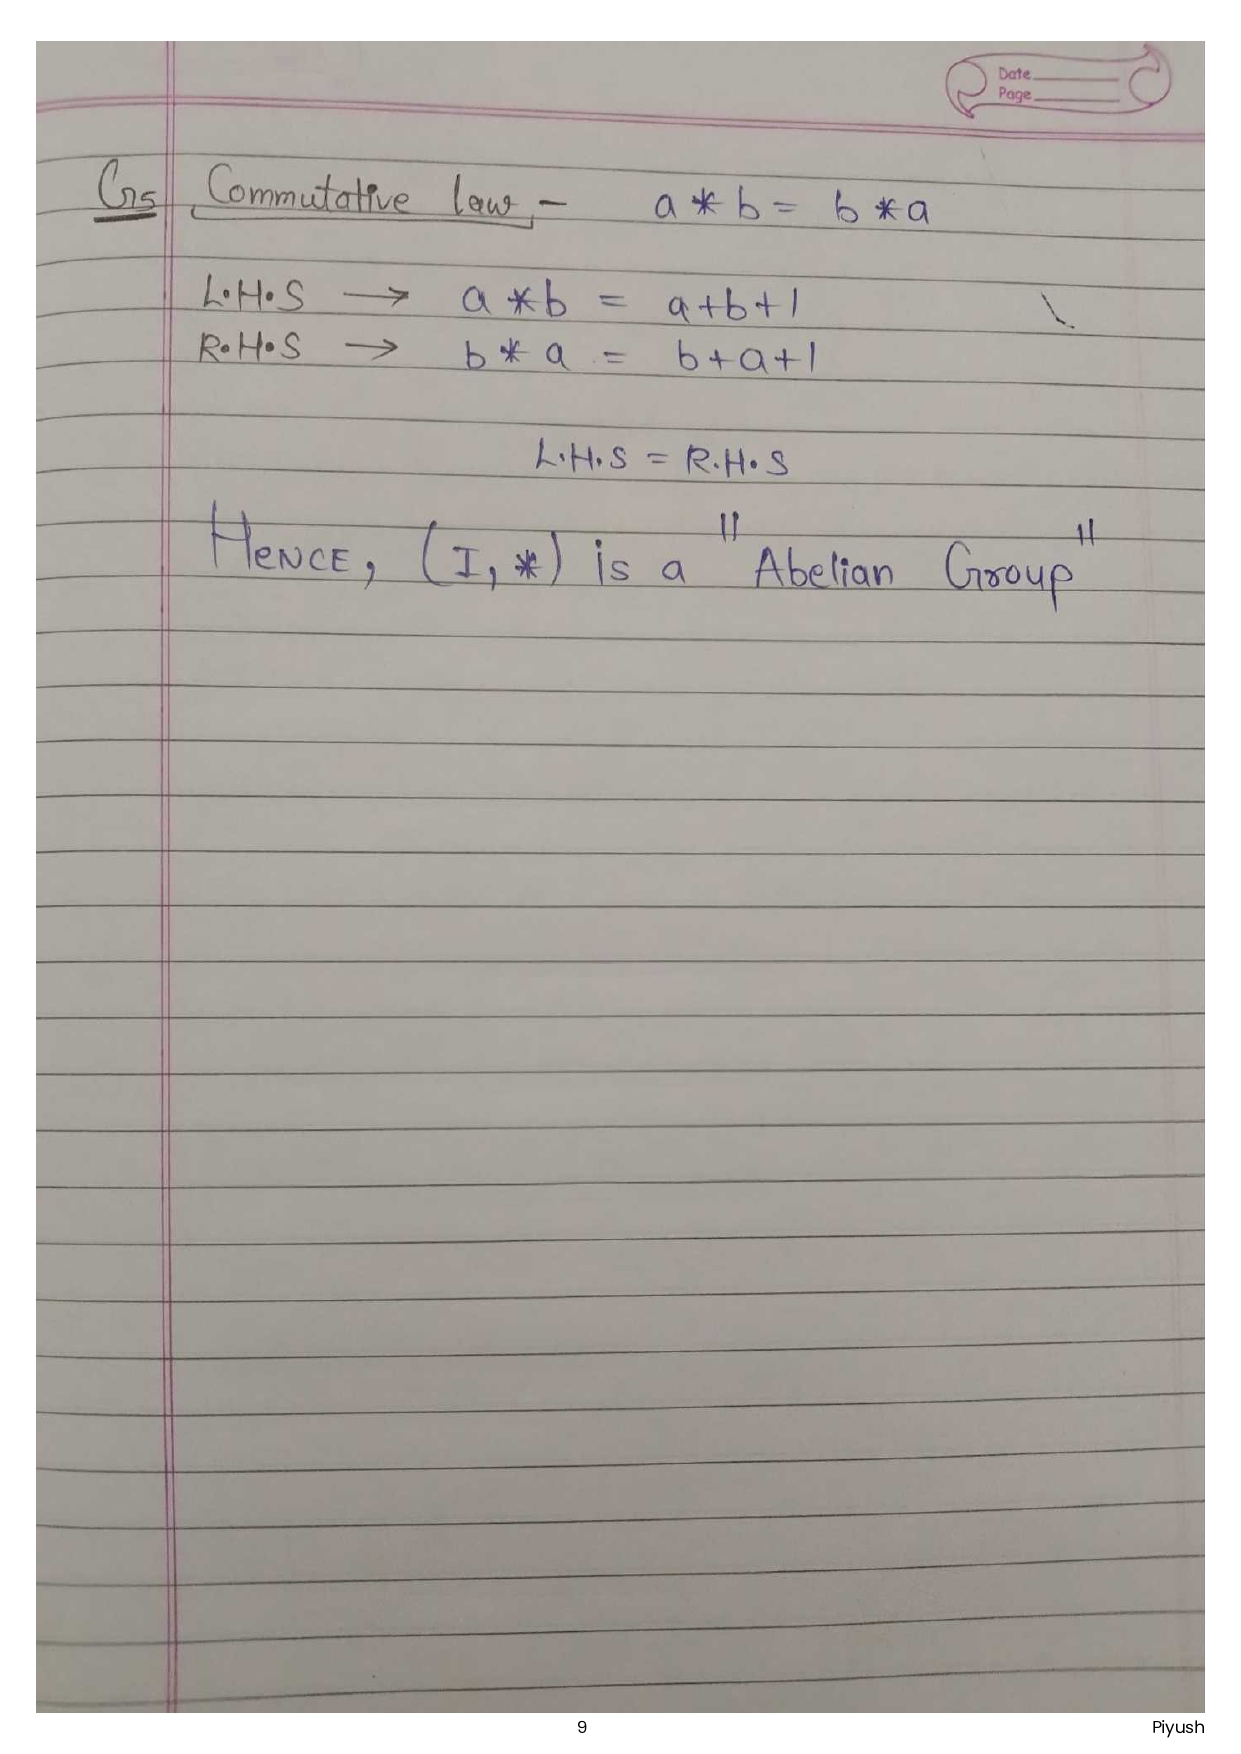 Date
Page
G5 Commutative law - a * b = b * a
L.H.S → a * b = a+b+1
R.H.S → b * a = b+a+1
L.H.S = R.H.S
HENCE, (I, *) is a "Abelian Group"
9 Piyush